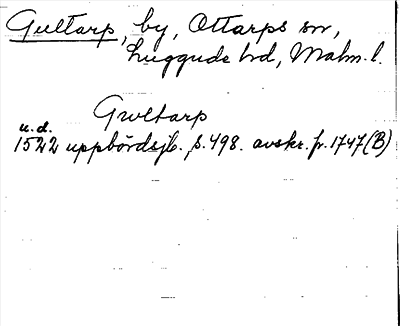 Gultarp, by, Ottarps sn,
Luggude hd, Malm. l.
Gwltarp
u. d.
1522 uppbördsjb. s. 498. avskr. fr. 1747 (B)